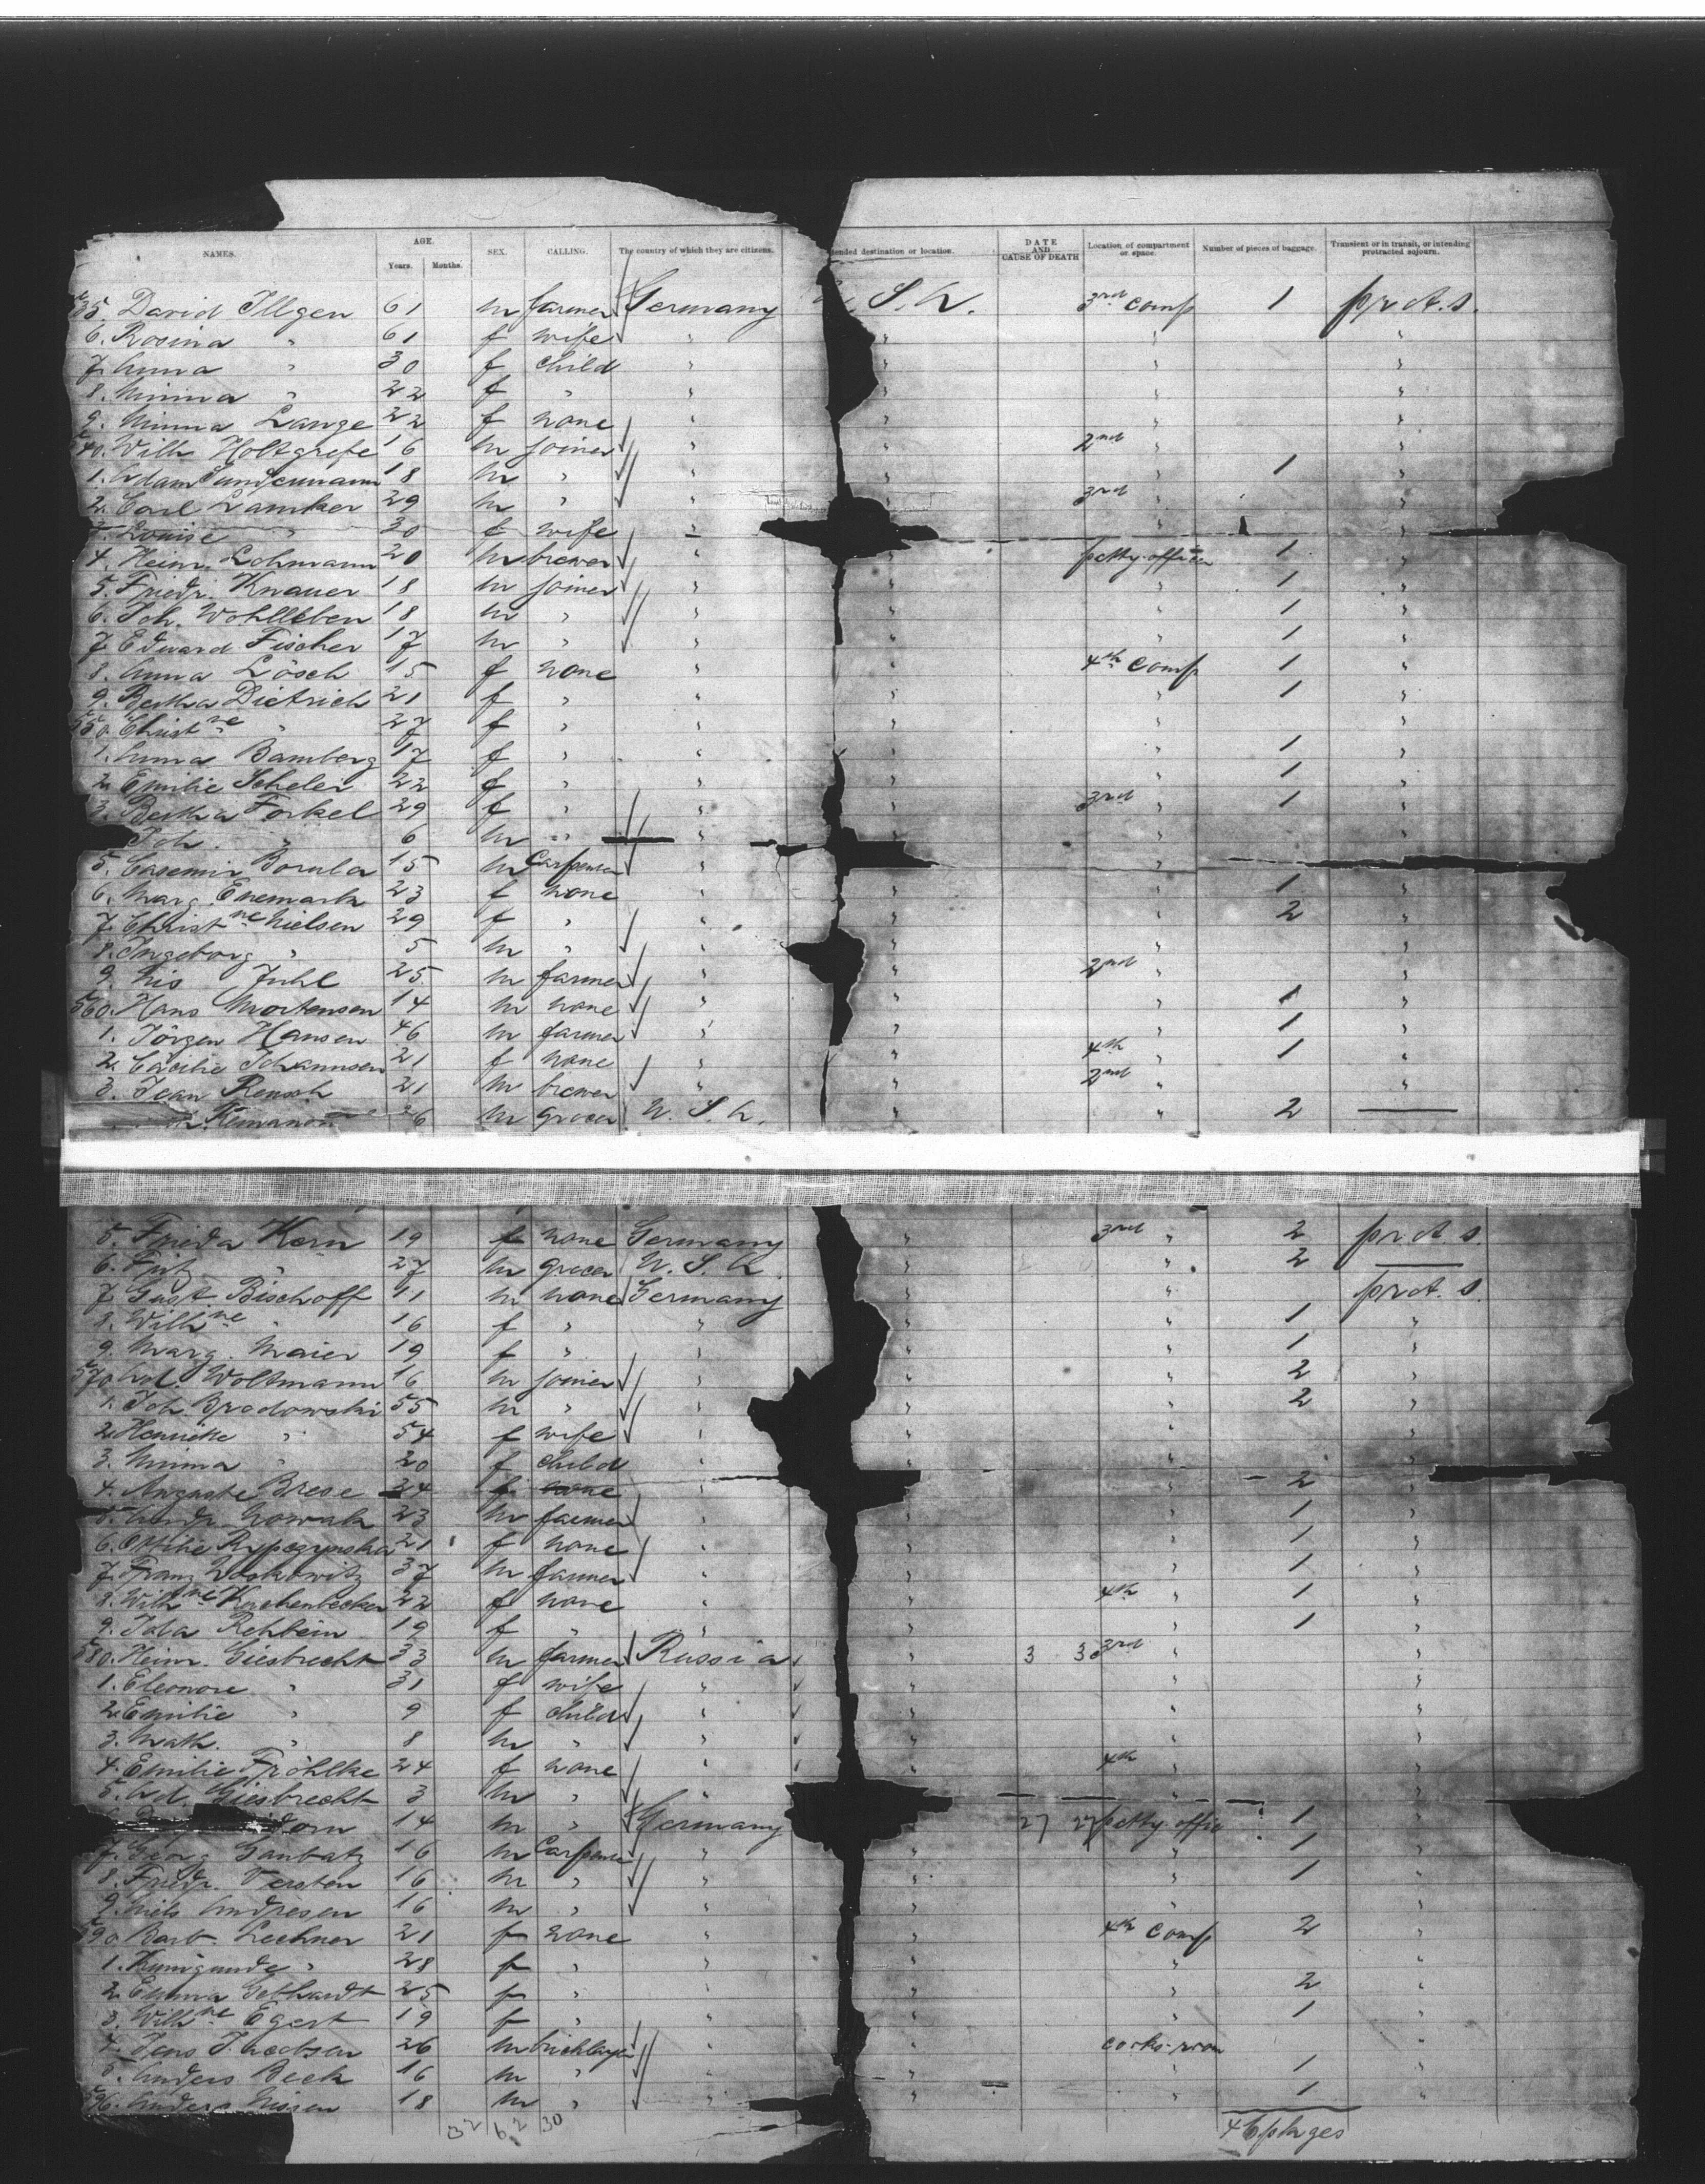 NAMES. AGE. Years. Months. SEX. CALLING. The country of which they are citizens. ended destination or location. DATE AND CAUSE OF DEATH Location of compartment or space. Number of pieces of baggage. Transient or in transit, or intending protracted sojourn.
535. David Illgen 61 m farmer Germany S. A. 3rd comp 1 prot. s.
6. Rosina " 61 f wife " " " "
7. Anna " 30 f child " " " "
8. Minna " 22 f " " " " "
9. Minna Lange 22 f none " " " "
540. Wilh Holtgrefe 16 m joiner " " 2nd " "
1. Adam 18 m " " " " 1 "
2. Carl Lamker 29 m " " " 3rd " "
3. Louise " 30 f wife " " 1 "
4. Heinr. Lohmann 20 m brewer " " petty officer 1 "
5. Friedr. Knauer 18 m joiner " " " 1 "
6. Joh. Wohlleben 18 m " " " " 1 "
7. Edward Fischer 17 m " " " " 1 "
8. Anna Lösch 15 f none " " 4th comp 1 "
9. Bertha Dietrich 21 f " " " " 1 "
550. Christne " 27 f " " " "
1. Anna Bamberg 17 f " " " " 1 "
2. Emilie Scheler 22 f " " " " 1 "
3. Bertha Forkel 29 f " " " 3rd " 1 "
Joh. " 6 m " " " " "
5. Casemir Borula 15 m Carpenter " " " "
6. Marg. Enemark 23 f none " " " 1 "
7. Christne Nielsen 29 f " " " " 2 "
8. Ingeborg " 5 m " " " " "
9. Nis Juhl 25 m farmer " " 2nd " "
560. Hans Mortensen 14 m none " " " 1 "
1. Jörgen Hansen 46 m farmer " " " 1 "
2. Cäcilie Johannsen 21 f none " " 4th " 1 "
3. Jean Rensch 21 m brewer " " 2nd " "
6 m grocer U. S. A. " " 2 —
5. Frieda Kern 19 f none Germany " 3rd " 2 prot. s.
6. Fritz " 27 m grocer U. S. A. " " 2 —
7. Gust Bischoff 11 m none Germany " " prot. s.
8. Wilhne " 16 f " " " " 1 "
9. Marg. Maier 19 f " " " " 1 "
570. Ad. Woltmann 16 m joiner " " " 2 "
1. Joh. 55 m " " " " 2 "
2. Henriette " 54 f wife " " " "
3. Minna " 20 f child " " " "
4. Auguste Brese 24 f none " " 2 "
5. Andr. Nowak 23 m farmer " " " 1 "
6. Ottilie 21 f none " " " 1 "
7. Franz 37 m farmer " " " 1 "
8. Wilhne 22 f none " " 4th " 1 "
9. Ida Rehbein 19 f " " " " 1 "
580. Heinr. Giesbrecht 33 m farmer Russia " 3 30 3rd " "
1. Eleonore " 31 f wife " " " "
2. Emilie " 9 f child " " " "
3. Math. " 8 m " " " " "
4. Emilie Fröhlke 24 f none " " 4th " "
5. Ad. Giesbrecht 3 m " " " "
14 m " Germany " 27 27 petty offic 1 "
7. Georg Gaubatz 16 m Carpenter " " " 1 "
8. Friedr. Versten 16 m " " " " 1 "
9. Niels Andresen 16 m " " " " "
590. Barb. Lechner 21 f none " " 4th comp 2 "
1. Kunigunde " 28 f " " " " "
2. Emma Gebhardt 25 f " " " " 2 "
3. Wilhne Egert 19 f " " " " 1 "
4. Jens Jacobsen 26 m bricklayer " " cooks-room "
5. Anders Beck 16 m " " " " 1 "
596. Anders Nissen 18 m " " " " 1 "
32 62 30 46 pkges